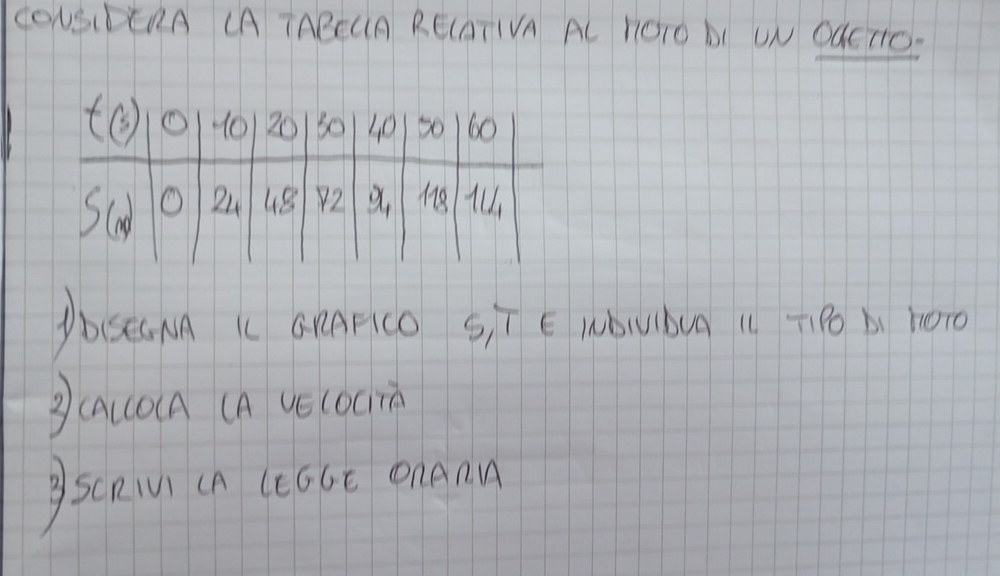 CONSIDERA LA TABELLA RELATIVA AL MOTO DI UN OGGETTO.
t(s) 0 10 20 30 40 50 60
S(m) 0 24 48 72 94 118 144
1) DISEGNA IL GRAFICO S,T E INDIVIDUA IL TIPO DI MOTO
2) CALCOLA LA VELOCITÀ
3) SCRIVI LA LEGGE ORARIA